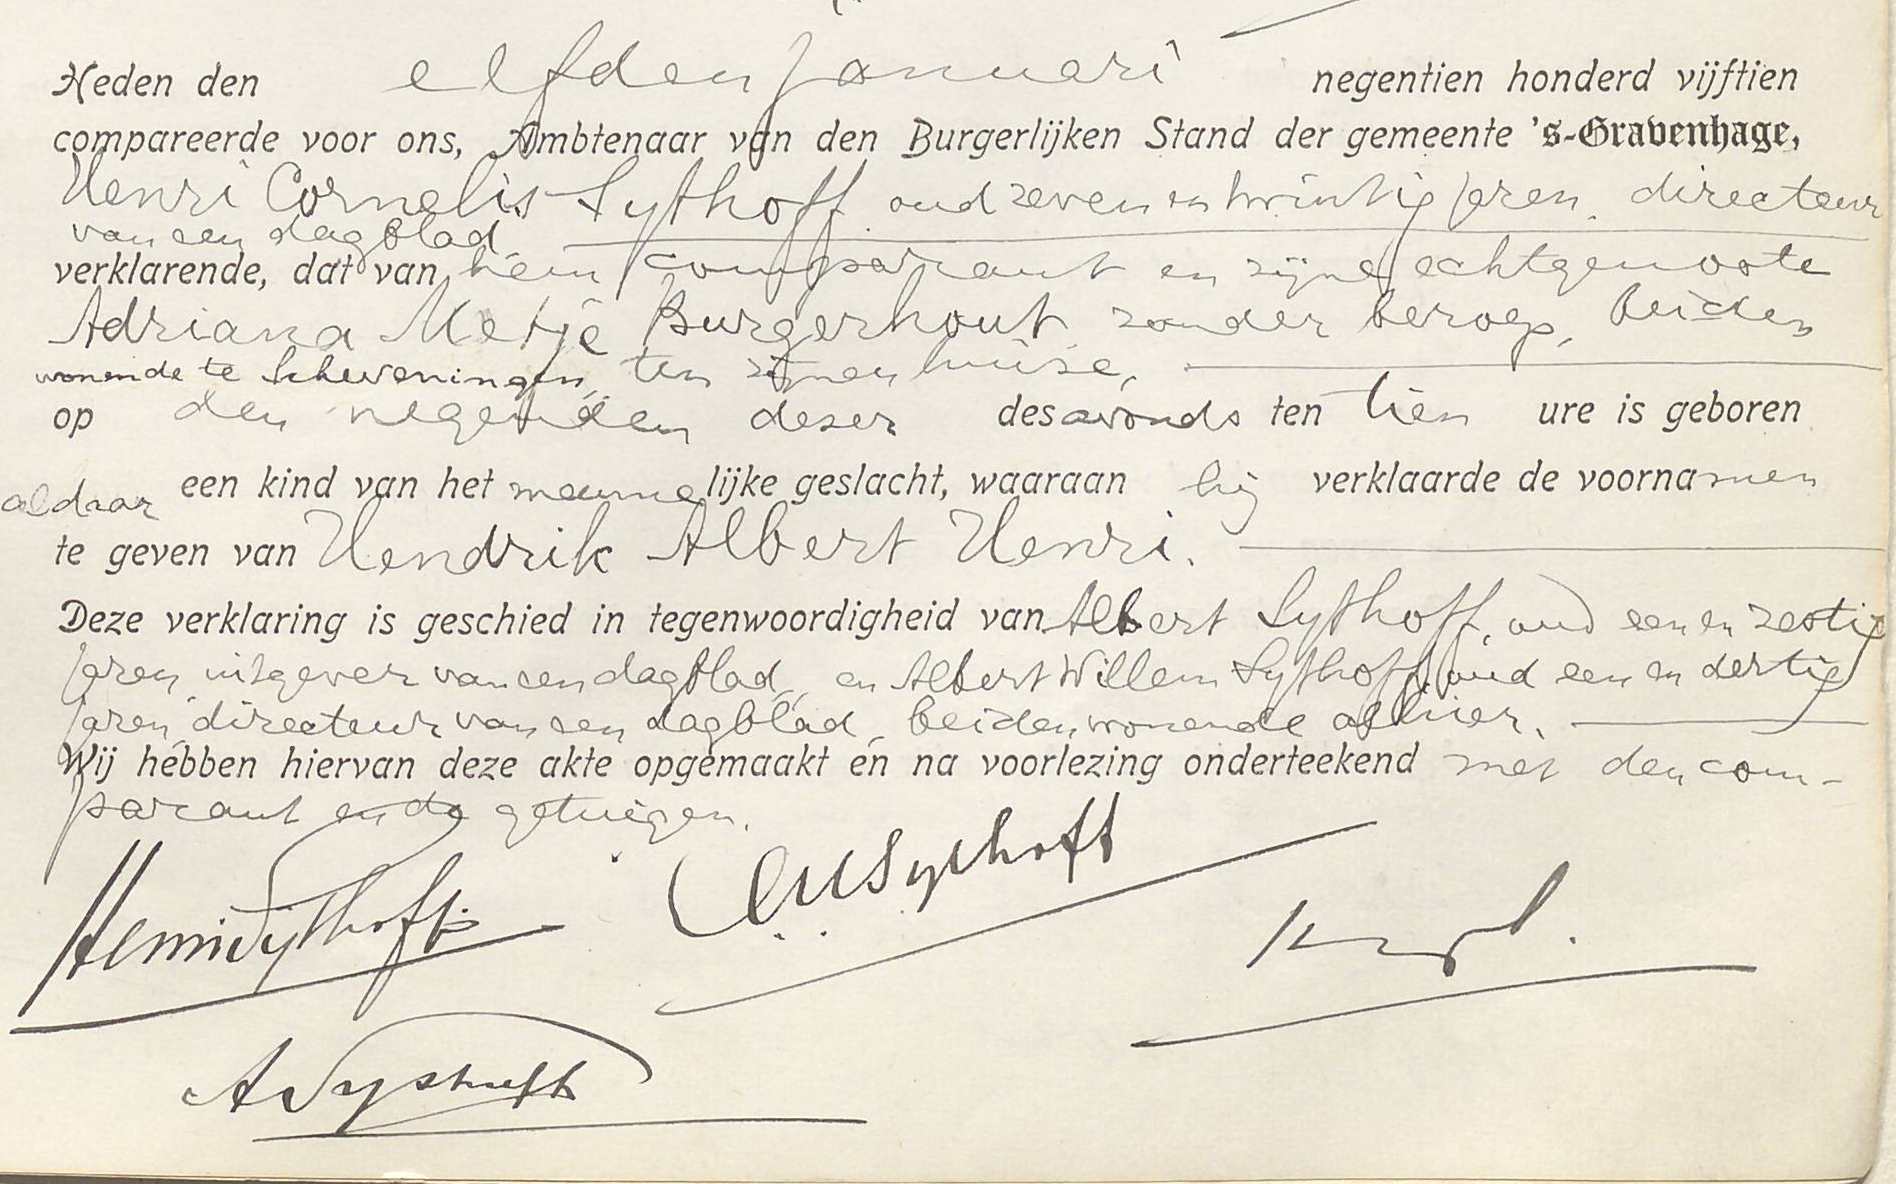 Heden den elfden januari negentien honderd vijftien
compareerde voor ons, Ambtenaar van den Burgerlijken Stand der gemeente 's-Gravenhage,
Henri Cornelis Sythoff oud zeven en twintig jaren, directeur
van een dagblad
verklarende, dat van hem comparant en zijne echtgenoote
Adriana Metje Burgerhout zonder beroep, beiden
wonende te Scheveningen, ten zijnen huise,
op den negenden dezer des avonds ten tien ure is geboren
aldaar een kind van het mannelijke geslacht, waaraan hij verklaarde de voornamen
te geven van Hendrik Albert Henri.
Deze verklaring is geschied in tegenwoordigheid van Albert Sythoff, oud een en zestig
jaren, uitgever van een dagblad, en Albert Willem Sythoff, oud een en dertig
jaren, directeur van een dagblad, beiden wonende alhier.
Wij hebben hiervan deze akte opgemaakt en na voorlezing onderteekend met den com-
parant en de getuigen.
Henri Sythoff
Sythoff
A Sythoff